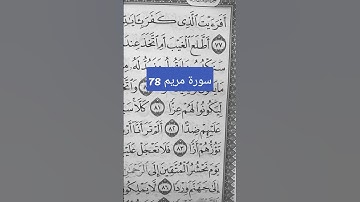 أَفَرَءَيْتَ ٱلَّذِى كَفَرَ بِـَٔايَ
٧٧ أَطَّلَعَ ٱلْغَيْبَ أَمِ ٱتَّخَذَ عِندَ
سورة مريم 78
لِّيَكُونُوا۟ لَهُمْ عِزًّا ٨١ كَلَّا سَ
عَلَيْهِمْ ضِدًّا ٨٢ أَلَمْ تَرَ أَنَّآ أَرْ
تَؤُزُّهُمْ أَزًّا ٨٣ فَلَا تَعْجَلْ عَلَ
يَوْمَ نَحْشُرُ ٱلْمُتَّقِينَ إِلَى ٱلرَّحْمَٰ
إِلَىٰ جَهَنَّمَ وِرْدًا ٨٦ لَّا يَمْلِكُ